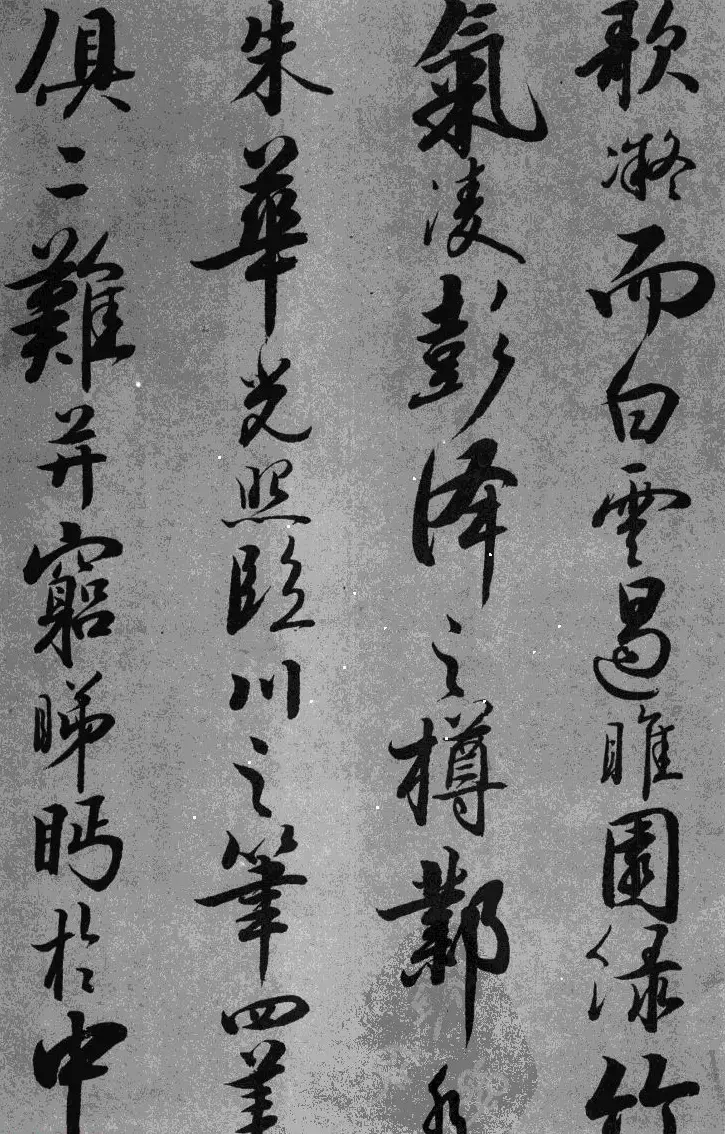 歌凝而白雲遏睢園緑竹
氣凌彭澤之樽鄴水
朱華光照臨川之筆四美
俱二難并窮睇眄於中